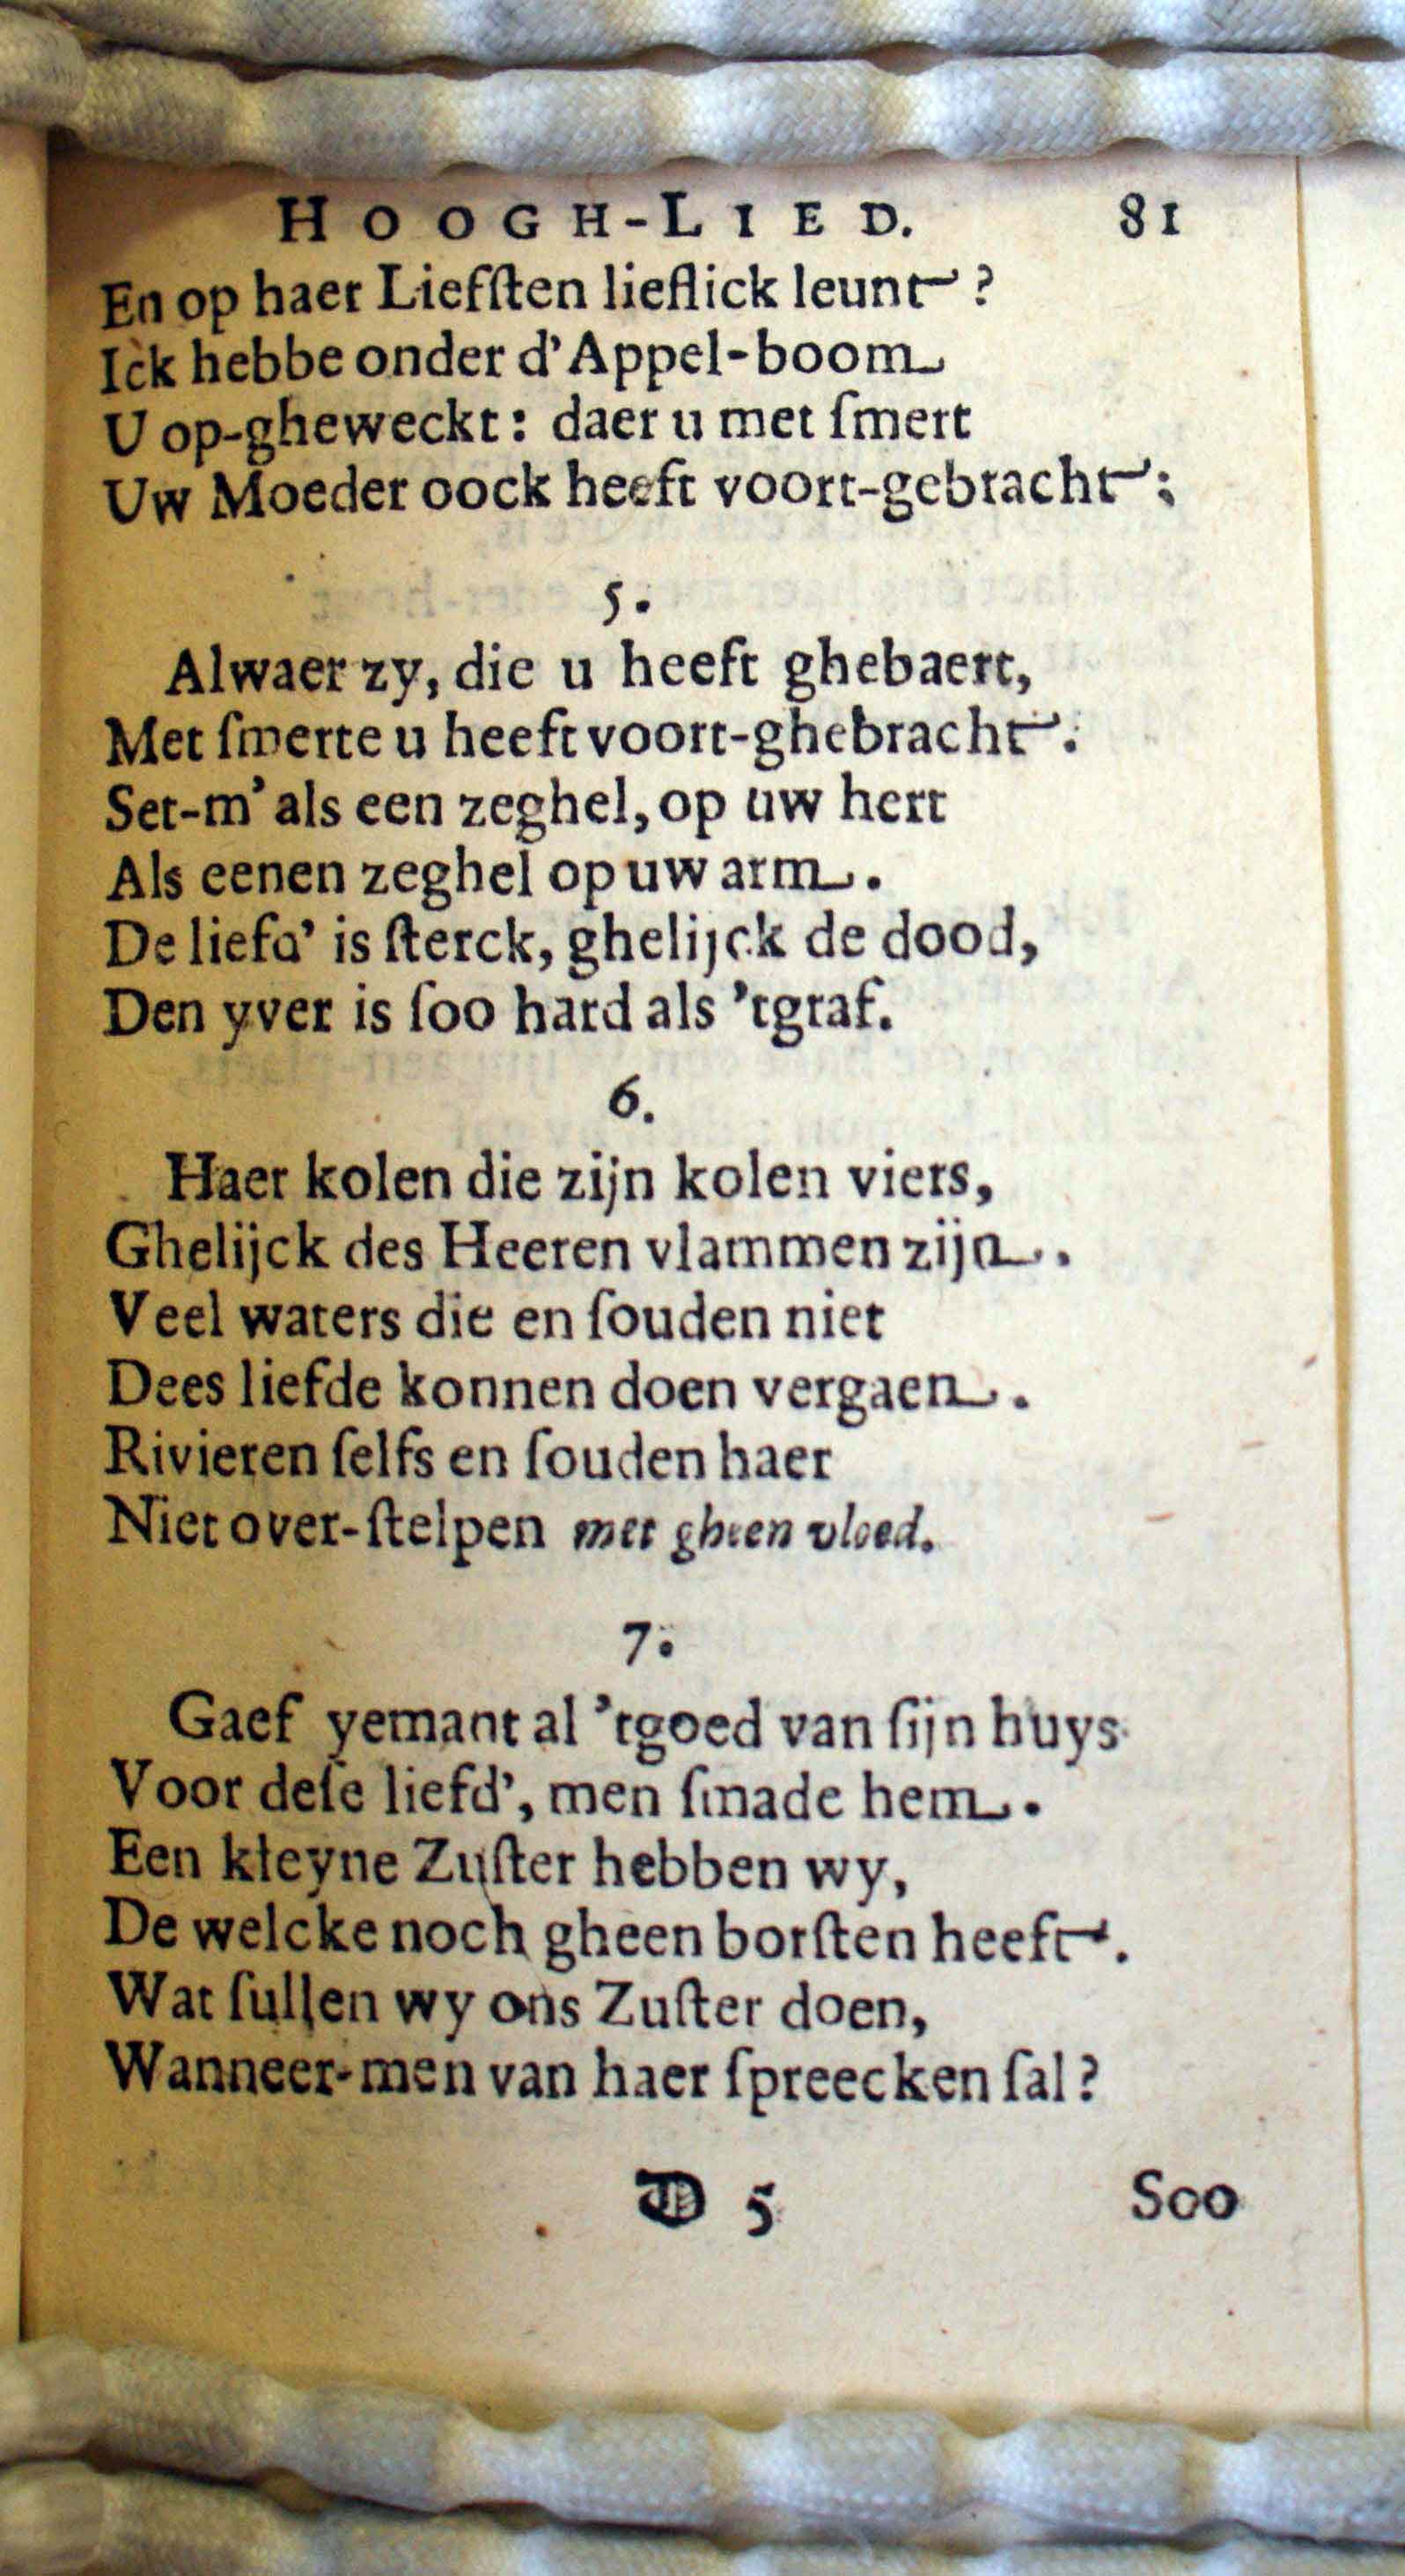 HOOGH-LIED. 81
En op haer Liefſten lieflick leunt?
Ick hebbe onder d'Appel-boom
U op-gheweckt: daer u met ſmert
Uw Moeder oock heeft voort-gebracht;
5.
Alwaer zy, die u heeft ghebaert,
Met ſmerte u heeft voort-ghebracht.
Set-m' als een zeghel, op uw hert
Als eenen zeghel op uw arm.
De liefd' is ſterck, ghelijck de dood,
Den yver is ſoo hard als 'tgraf.
6.
Haer kolen die zijn kolen viers,
Ghelijck des Heeren vlammen zijn.
Veel waters die en ſouden niet
Dees liefde konnen doen vergaen.
Rivieren ſelfs en ſouden haer
Niet over-ſtelpen met gheen vloed.
7.
Gaef yemant al 'tgoed van ſijn huys
Voor deſe liefd', men ſmade hem.
Een kleyne Zuſter hebben wy,
De welcke noch gheen borſten heeft.
Wat ſullen wy ons Zuſter doen,
Wanneer-men van haer ſpreecken ſal?
D 5 Soo